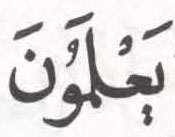 يَعْلَمُوْنَ